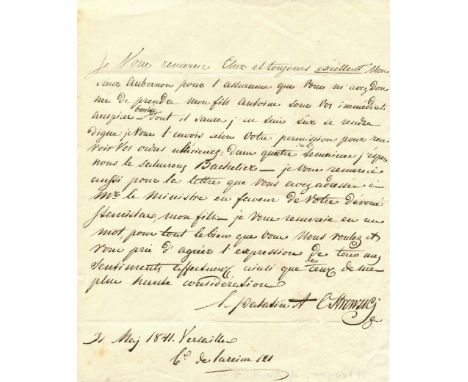 Je Vous remercie Cher et toujours excellent Mon
sieur Aubernon pour l'assurance que Vous m'avez don
né de prendre mon fils Antoine sous Vos immédiats
auspices bontés dont il saura j'en suis sûr se rendre
digne je Vous l'envois selon Votre permission pour re
voir Vos ordres ultérieurs: dans quatre semaines j'espè
nous le saluerons Bachelier – je Vous remercie
aussi pour la lettre que Vous avez adressée à
Mr le Ministre en faveur de Votre dévoué
Stanislas mon fils – je Vous remercie en un
mot pour tout le bien que Vous Nous voulez et
Vous prie d'agréer l'expression de tous mes
sentiments affectueux ainsi que ceux de ma
plus haute considération
le palatin A Ostrowski
31 Maj 1841. Versailles
de